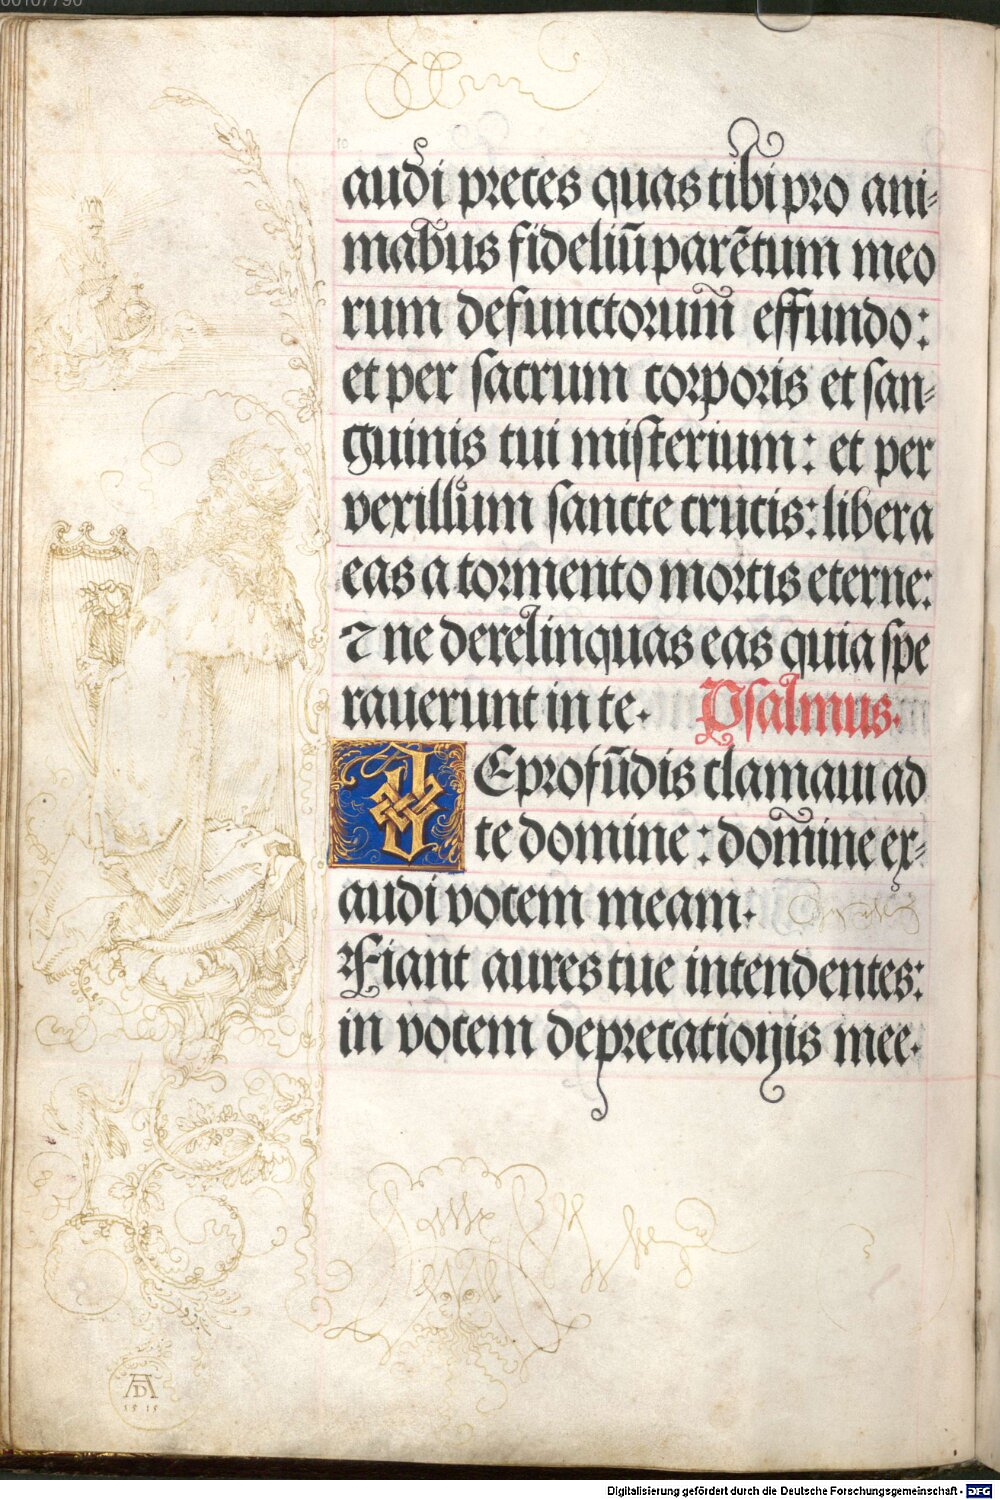 audi preces quas tibi pro ani-
mabus fideliū parētum meo
rum defunctorum̄ effundo:
et per sacrum corporis et san-
guinis tui misterium: et per
vexillum sancte crucis: libera
eas a tormento mortis eterne:
⁊ ne derelinquas eas quia spe
rauerunt in te. Psalmus.
DE profūdis clamaui ad
te domine: domine ex-
audi vocem meam.
Fiant aures tue intendentes:
in vocem deprecationis mee.
AD
1515
Digitalisierung gefördert durch die Deutsche Forschungsgemeinschaft - DFG